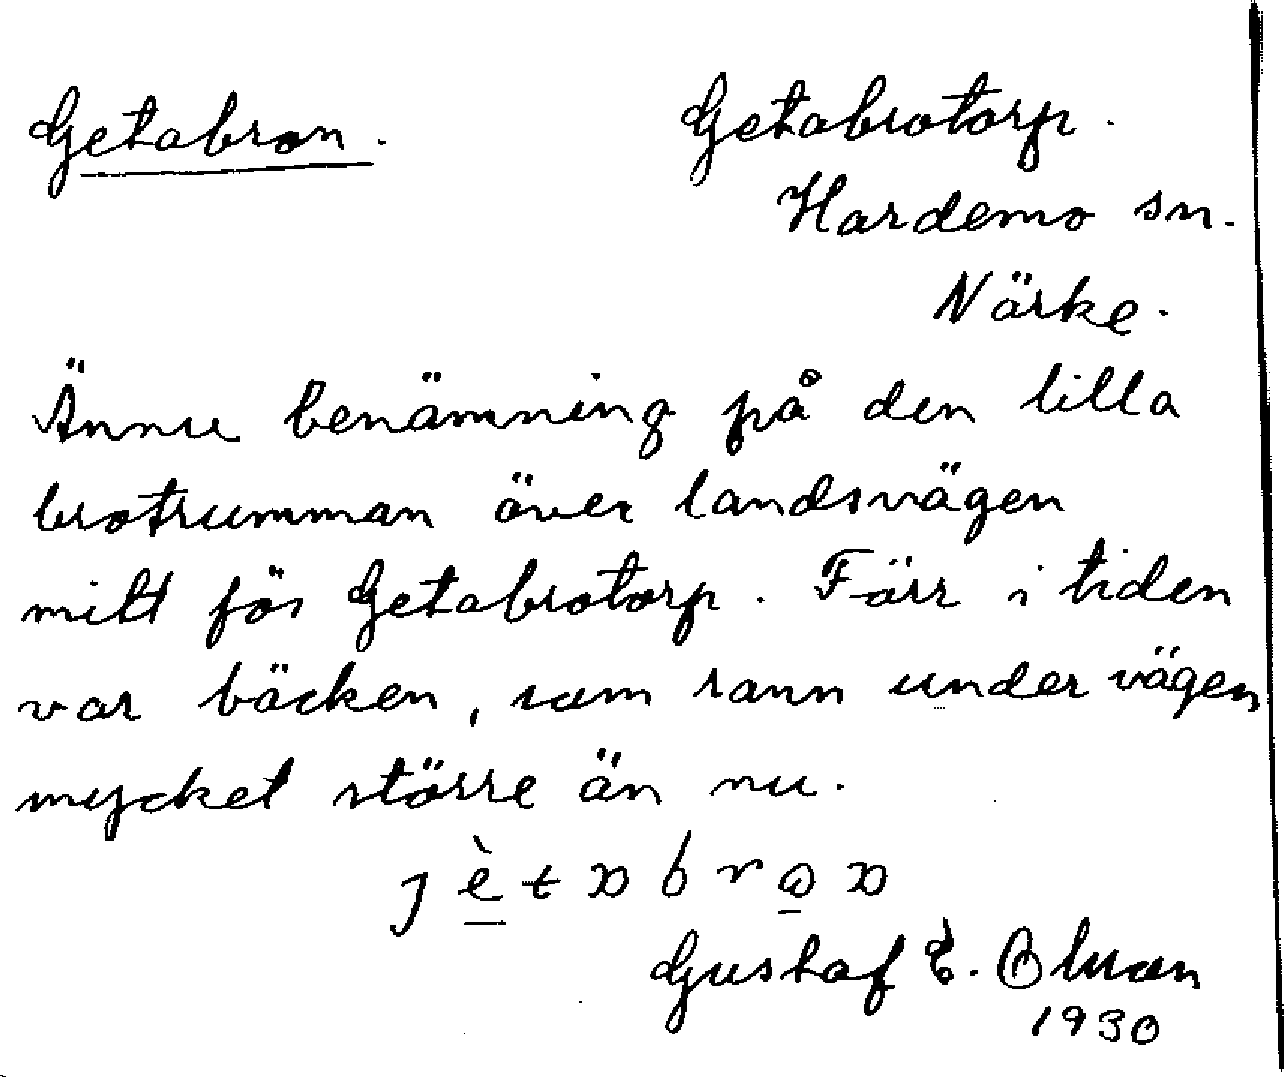 Getabron.
Getabrotorp.
Hardemo sn.
Närke.
Ännu benämning på den lilla
brotrumman över landsvägen
mitt för Getabrotorp. Förr i tiden
var bäcken, som rann under vägen
mycket större än nu.
Gustaf E.
1930